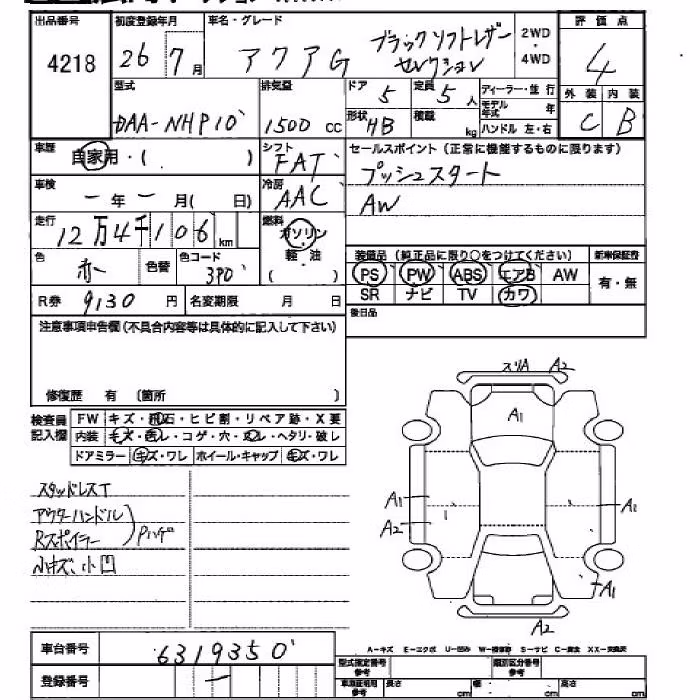 出品番号 初度登録年月 車名・グレード 評価点
4218 26 7月 アクアG ブラックソフトレザーセレクション 2WD・4WD 4
型式 排気量 ドア 5 定員 5人 ディーラー・並行 外装 内装
DAA-NHP10 1500cc 形状 HB 積載 kg モデル年式 年 C B
ハンドル 左・右
車歴 自家用・( ) シフト FAT セールスポイント(正常に機能するものに限ります)
車検 一年一月( ) 冷房 AAC プッシュスタート
AW
走行 12万4千106km 燃料 ガソリン・軽油( )
装備品(純正品に限り○をつけてください) 新車保証書
色 赤 色替 色コード 3P0 PS PW ABS エアB AW 有・無
R券 9130円 名変期限 月 日 SR ナビ TV カワ
注意事項申告欄(不具合内容等は具体的に記入して下さい) 後日品
修復歴 有 (箇所 )
検査員記入欄 FW キズ・飛石・ヒビ割・リペア跡・X要
内装 キズ・汚レ・コゲ・穴・スレ・ヘタリ・破レ
ドアミラー キズ・ワレ ホイール・キャップ キズ・ワレ
スリA A2
A1
A1 A1
A2
A1
A2
スタッドレスT
アウターハンドル
Rスポイラー Pハゲ
小キズ、小凹
車台番号 6319350
登録番号 一
A-キズ E-エクボ U-凹み W-補修跡 S-サビ C-腐食 XX-交換済
型式指定番号 参考 類別区分番号 参考
車庫証明用 参考 長さ cm 幅 cm 高さ cm